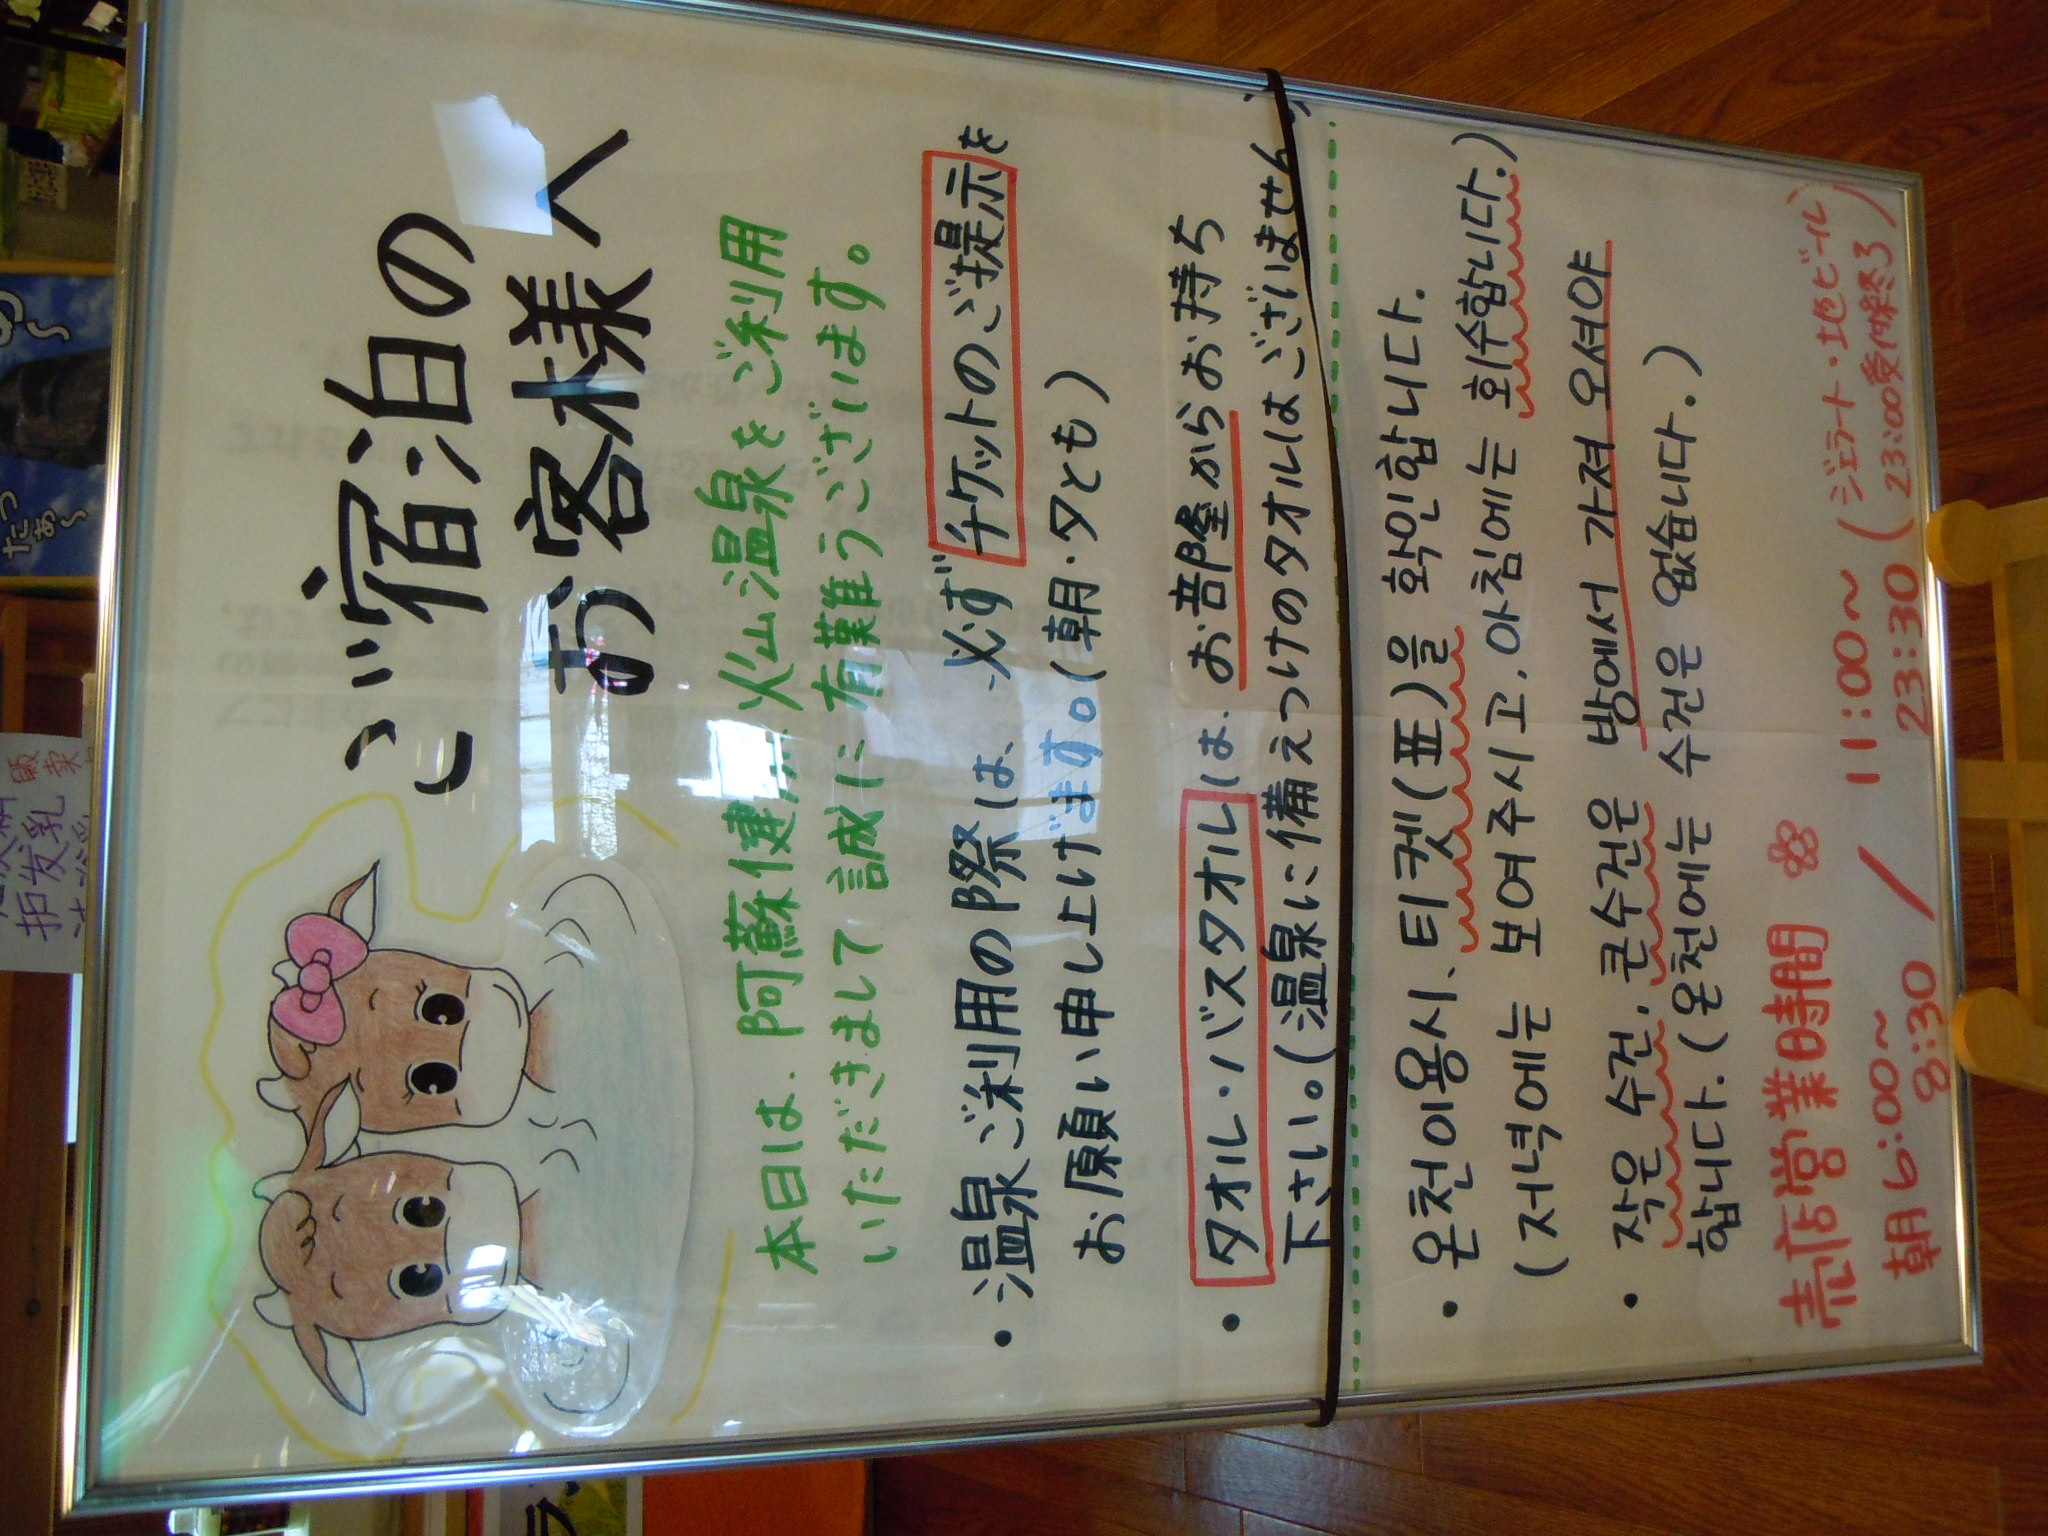 ご宿泊の
お客様へ
本日は、阿蘇健康火山温泉をご利用
いただきまして誠に有難うございます。
・温泉ご利用の際は、必ずチケットのご提示を
お願い申し上げます。(朝・夕とも)
・タオル・バスタオルは、お部屋からお持ち
下さい。(温泉に備えつけのタオルはございません。)
・온천이용시, 티켓(표)을 확인합니다.
(저녁에는 보여주시고, 아침에는 회수합니다.)
・작은 수건, 큰수건은 방에서 가져 오셔야
합니다. (온천에는 수건은 없습니다.)
売店営業時間
朝6:00～8:30 / 11:00～23:30 (ジェラート・地ビール 23:00受付終了)
护发乳